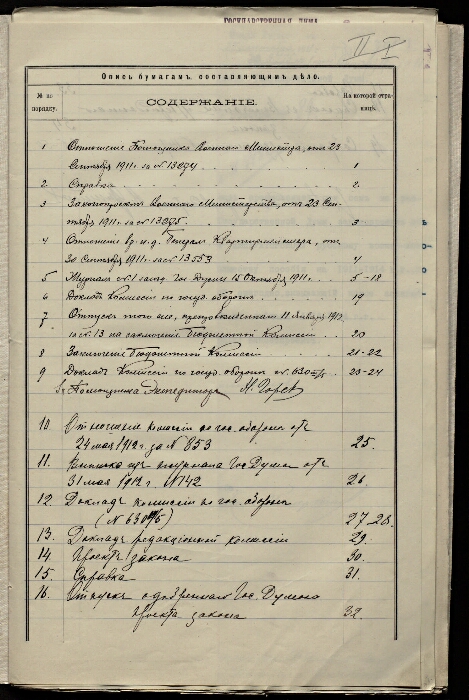 ГОСУДАРСТВЕННАЯ ДУМА
II
Опись бумагамъ, составляющимъ дѣло.
№ по порядку.
СОДЕРЖАНІЕ.
На которой страницѣ.
1 Отношеніе Помощника Военнаго Министра, отъ 23
Сентября 1911 г. за № 13274 1
2 Справка 2
3 Законопроектъ Военнаго Министерства, отъ 23 Сен-
тября 1911 г. за № 13275 3
4 Отношеніе вр. и. д. Генерал Квартирмейстера, от
30 Сентября 1911 г. за № 13553 4
5 Журнал № 1 засѣд. Гос. Думы 15 Октября 1911 г. 5-18
6 Докладъ Комиссіи по госуд. обороне 19
7 Отпускъ того же, препровожденнаго 11 Января 1912
за № 13 на заключеніе Бюджетной Комиссіи 20
8 Заключеніе Бюджетной Комиссіи 21-22
9 Докладъ Комиссіи по госуд. обороне № 630 23-24
Помощника Экспедитора
10. Отношеніе комиссіи по гос. обороне отъ
24 мая 1912 г. за № 853 25.
11. Выписка изъ журнала Гос. Думы отъ
31 мая 1912 г. № 142 26.
12. Докладъ комиссіи по гос. обороне
(№ 630) 27-28.
13. Докладъ редакціонной комиссіи 29.
14. Проектъ закона 30.
15. Справка 31.
16. Отпускъ одобреннаго Гос. Думою
проекта закона 32.